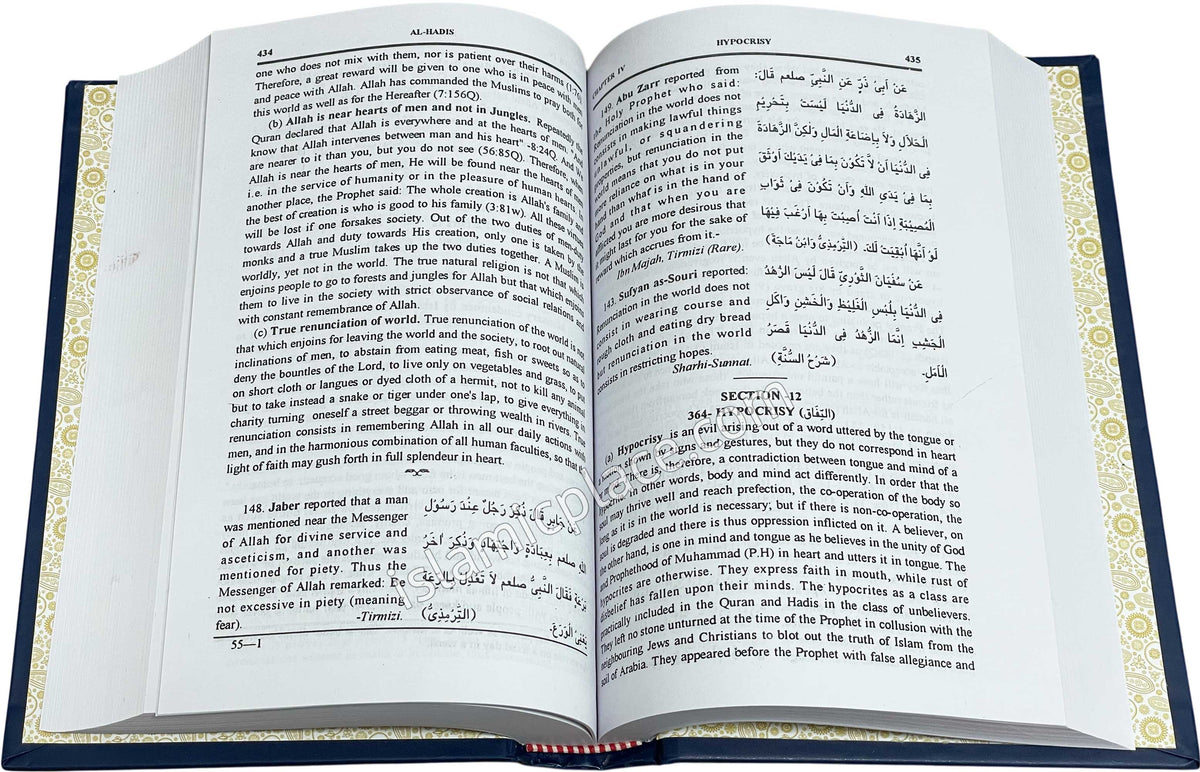 434
AL-HADIS
one who does not mix with them, nor is patient over their harms
Therefore, a great reward will be given to one who is in peace with
and peace with Allah. Allah has commanded the Muslims to pray both
this world as well as for the Hereafter (7:156Q)
(b) Allah is near hearts of men and not in Jungles. Repeatedly,
Quran declared that Allah is everywhere and at the hearts of men,
know that Allah intervenes between man and his heart" -8:24Q.
are nearer to it than you, but you do not see (56:85Q). Therefore
Allah is near the hearts of men, He will be found near the hearts of
i.e. in the service of humanity or in the pleasure of human heart.
another place, the Prophet said: The whole creation is Allah's family,
the best of creation is who is good to his family (3:81w). All these
will be lost if one forsakes society. Out of the two duties of men,
towards Allah and duty towards His creation, only one is done by
monks and a true Muslim takes up the two duties together. A Muslim
worldly, yet not in the world. The true natural religion is not that which
enjoins people to go to forests and jungles for Allah but that which enjoins
them to live in the society with strict observance of social relations and
with constant remembrance of Allah.
(c) True renunciation of world. True renunciation of the world is not
that which enjoins for leaving the world and the society, to root out natural
inclinations of men, to abstain from eating meat, fish or sweets so as to
deny the bountles of the Lord, to live only on vegetables and grass, to put
on short cloth or langues or dyed cloth of a hermit, not to kill any animal
but to take instead a snake or tiger under one's lap, to give everything in
charity turning oneself a street beggar or throwing wealth in rivers. True
renunciation consists in remembering Allah in all our daily actions and
men, and in the harmonious combination of all human faculties, so that the
light of faith may gush forth in full splendeur in heart.
148. Jaber reported that a man
was mentioned near the Messenger
of Allah for divine service and
asceticism, and another was
mentioned for piety. Thus the
Messenger of Allah remarked: Be
not excessive in piety (meaning
fear).
-Tirmizi.
جابر قال ذُكِرَ رَجُلٌ عِنْدَ رَسُوْلِ
اللهِ صلعم بِعِبَادَةٍ وَّاجْتِهَادٍ وَذُكِرَ اٰخَرُ
فَقَالَ النَّبِىُّ صلعم لَا تَعْدِلْ بِالرِّعَةِ
يَعْنِى الْوَرَعَ.
(التِّرْمِذِىُّ)
55—1
HYPOCRISY
435
CHAPTER IV
Abu Zarr reported from
Holy Prophet who said:
in the world does not
making lawful things
or squandering
but renunciation in the
means that you do not put
reliance on what is in your
than what is in the hand of
and that when you are
you are more desirous that
last for you for the sake of
which accrues from it.-
Ibn Majah, Tirmizi (Rare).
عَنْ اَبِىْ ذَرٍّ عَنِ النَّبِىِّ صلعم قَالَ:
الزَّهَادَةُ فِى الدُّنْيَا لَيْسَتْ بِتَحْرِيْمِ
الْحَلَالِ وَلَا بِاِضَاعَةِ الْمَالِ وَلٰكِنَّ الزَّهَادَةَ
فِى الدُّنْيَا اَنْ لَّا تَكُوْنَ بِمَا فِىْ يَدَيْكَ اَوْثَقَ
بِمَا فِىْ يَدَىِ اللهِ وَاَنْ تَكُوْنَ فِىْ ثَوَابِ
الْمُصِيْبَةِ اِذَا اَنْتَ اُصِبْتَ بِهَا اَرْغَبَ فِيْهَا
لَوْ اَنَّهَا اُبْقِيَتْ لَكَ. (التِّرْمِذِىُّ وَابْنُ مَاجَةَ)
143. Sufyan as-Souri reported:
in the world does not
in wearing course and
cloth and eating dry bread
renunciation in the world
consists in restricting hopes.
Sharhi-Sunnat.
عَنْ سُفْيَانَ الثَّوْرِىِّ قَالَ لَيْسَ الزُّهْدُ
فِى الدُّنْيَا بِلُبْسِ الْغَلِيْظِ وَالْخَشِنِ وَاَكْلِ
الْجَشِبِ اِنَّمَا الزُّهْدُ فِى الدُّنْيَا قَصْرُ
الْاَمَلِ. (شَرْحُ السُّنَّةِ)
SECTION 12
364- HYPOCRISY (النِّفَاق)
(a) Hypocrisy is an evil arising out of a word uttered by the tongue or
shown by signs and gestures, but they do not correspond in heart
There is, therefore, a contradiction between tongue and mind of a
In other words, body and mind act differently. In order that the
soul may thrive well and reach prefection, the co-operation of the body so
long as it is in the world is necessary; but if there is non-co-operation, the
soul is degraded and there is thus oppression inflicted on it. A believer, on
the other hand, is one in mind and tongue as he believes in the unity of God
and Prophethood of Muhammad (P.H) in heart and utters it in tongue. The
hypocrites are otherwise. They express faith in mouth, while rust of
unbelief has fallen upon their minds. The hypocrites as a class are
practically included in the Quran and Hadis in the class of unbelievers.
They left no stone unturned at the time of the Prophet in collusion with the
neighbouring Jews and Christians to blot out the truth of Islam from the
soil of Arabia. They appeared before the Prophet with false allegiance and
islamicplace.com